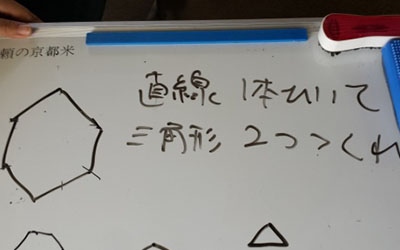 頼の京都米
直線 1本ひいて
三角形 2つつくれ